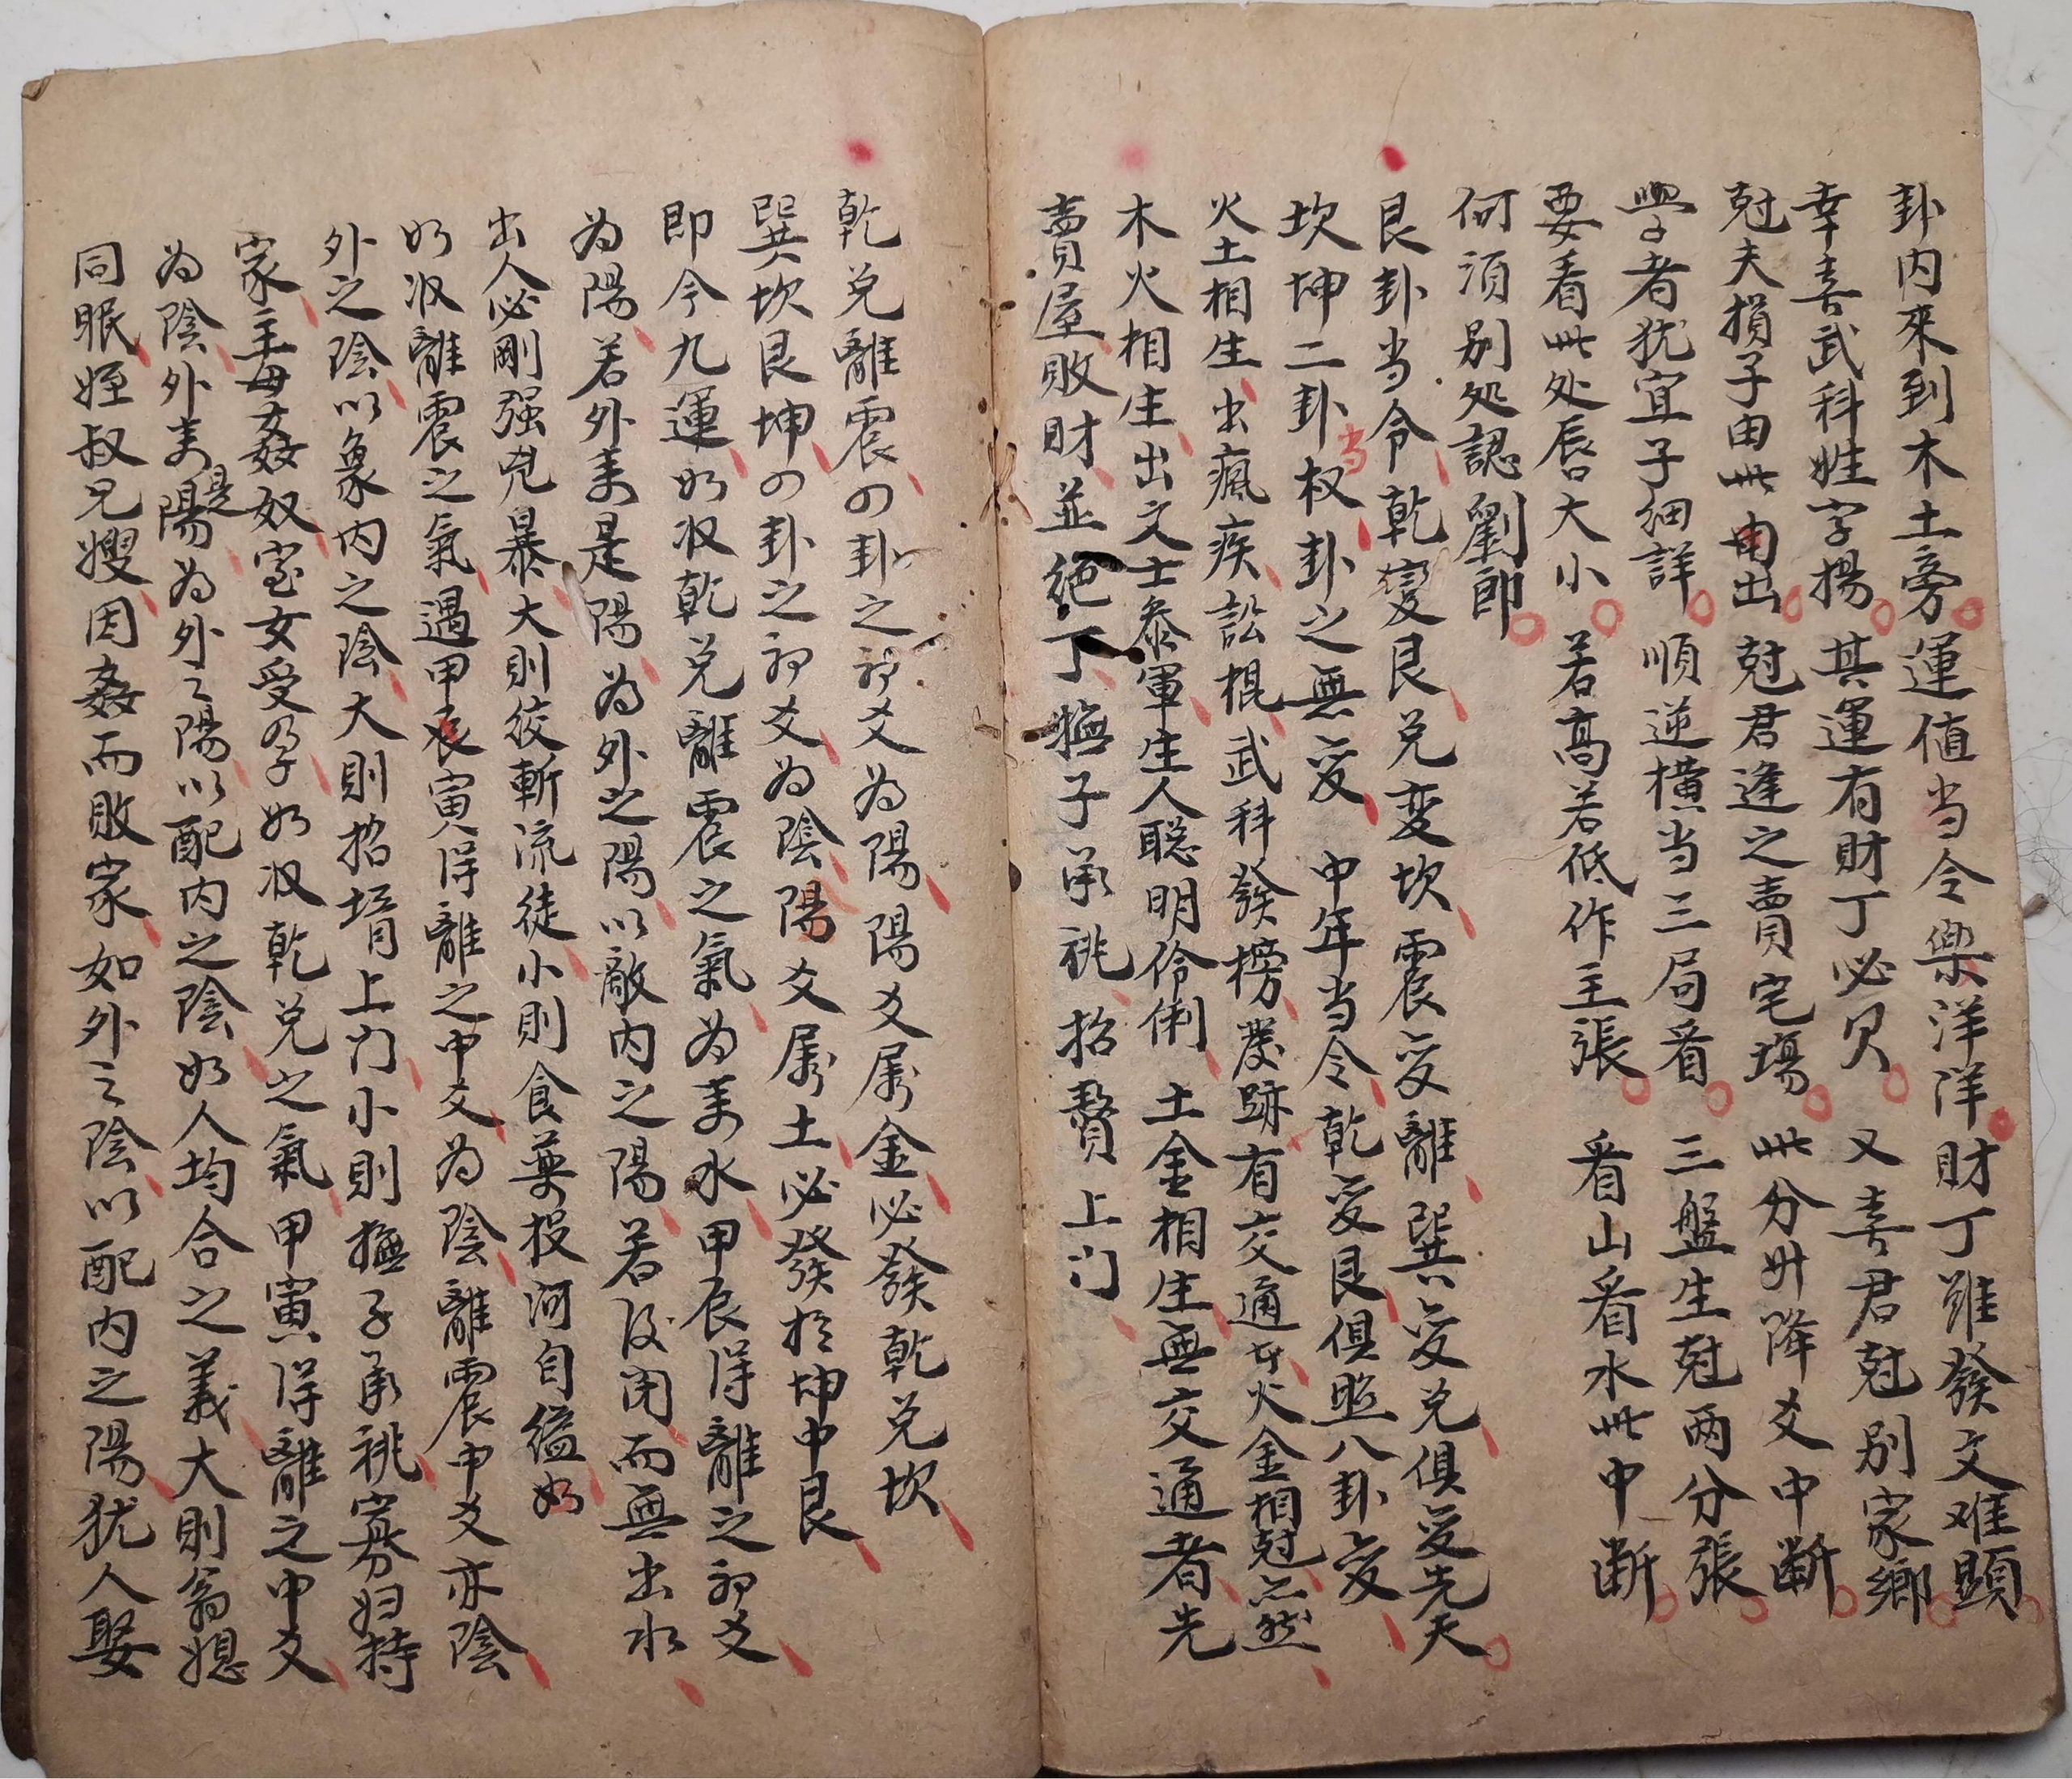 卦内來到木土旁運值当令樂洋洋財丁雖發文难顕
幸喜武科姓字揚其運有財丁必欠又喜君尅别家鄉
尅夫損子由此出尅君逢之賣宅塲此分升降爻中断
學者犹宜子细詳順逆横当三局看三盤生尅两分張
要看此处唇大小若高若低作主張看山看水此中断
何須别処認劉郎
艮卦当令乾變艮兑变坎震变離巽变兑俱变先天
坎坤二卦当权卦之無变中年当令乾变艮俱照八卦变
火土相生出瘋疾訟棍武科發榜發跡有交通才火金相尅亦然
木火相生出文士叅軍生人聪明伶俐土金相生無交通者先
賣屋敗財並絕丁撫子承祧招贅上门
乾兑離震の卦之初爻為陽陽爻屬金必發乾兑坎
巽坎艮坤の卦之初爻為陰陽爻屬土必發於坤中艮
即今九運如収乾兑離震之氣為来水甲辰得離之初爻
為陽若外来是陽為外之陽以敵内之陽若没闭而無出水
出人必剛强兇暴大則绞斬流徒小則食藥投河自缢如
如収離震之氣過甲寅得離之中爻為陰離震中爻亦陰
外之陰以象内之陰大則招壻上门小則撫子承祧寡妇持
家主母姦奴室女受孕如収乾兑之氣甲寅得離之中爻
為陰外来是陽為外之陽以配内之陰如人均合之義大則翁媳
同眠姪叔兄嫂因姦而敗家如外之陰以配内之陽犹人娶